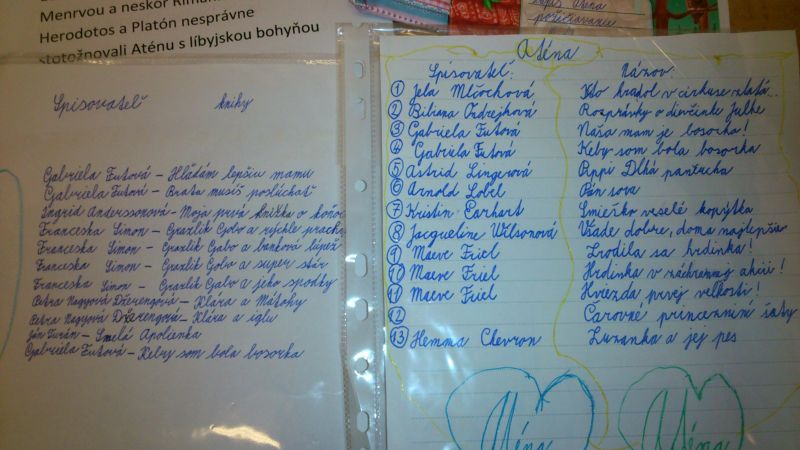 Menrvou a neskôr
Herodotos a Platón nesprávne
stotožňovali Aténu s líbyjskou bohyňou
Spisovateľ knihy
Gabriela Futová - Hľadám lepšiu mamu
Gabriela Futová - Brata musíš poslúchať
Ingrid Anderssonová - Moja prvá knižka o koňoch
Franceska Simon - Grázlik Gabo a rýchle prachy
Franceska Simon - Grázlik Gabo a banková lúpež
Franceska Simon - Grázlik Gabo a super stár
Franceska Simon - Grázlik Gabo a jeho spodky
Petra Nagyová Džerengová - Klára a Mátohy
Petra Nagyová Džerengová - Klára a iglu
Ján Turán - Smelá Apolienka
Gabriela Futová - Keby som bola bosorka
Aténa
Spisovateľ: Názov:
1 Jela Mlčochová Kto hradol v cirkuse zlatá..
2 Bibiana Ondrejková Rozprávky o dievčinke Julke
3 Gabriela Futová Naša mam je bosorka!
4 Gabriela Futová Keby som bola bosorka
5 Astrid Lingerová Pippi Dlhá pančucha
6 Arnold Lobel Pán sova
7 Kristin Earhart Smieško veselé kopýtka
8 Jacqueline Wilsonová Všade dobre, doma najlepšie
9 Maeve Friel Zrodila sa hrdinka!
10 Maeve Friel Hrdinka v záchrannej akcii!
11 Maeve Friel Hviezda prvej veľkosti!
12 Čarovné princeznini šaty
13 Hemma Chevron Zuzanka a jej pes
Aténa Aténa